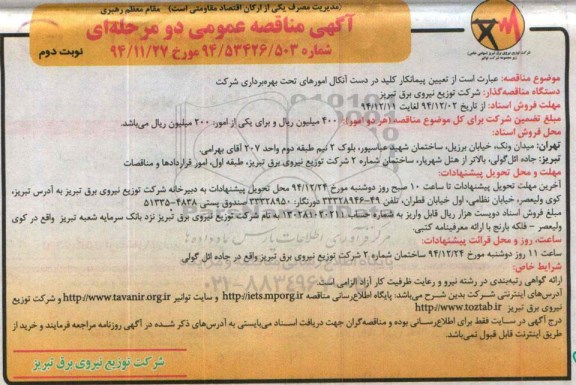 (مدیریت مصرف یکی از ارکان اقتصاد مقاومتی است) مقام معظم رهبری
آگهی مناقصه عمومی دو مرحله‌ای
شماره ۹۴/۵۳۴۲۶/۵۰۳ مورخ ۹۴/۱۱/۲۷
نوبت دوم
موضوع مناقصه: عبارت است از تعیین پیمانکار کلید در دست آنکال امورهای تحت بهره‌برداری شرکت
دستگاه مناقصه‌گذار: شرکت توزیع نیروی برق تبریز
مهلت فروش اسناد: از تاریخ ۹۴/۱۲/۰۲ لغایت ۹۴/۱۲/۱۱
مبلغ تضمین شرکت برای کل موضوع مناقصه (هر دو امور): ۴۰۰ میلیون ریال و برای یکی از امور، ۲۰۰ میلیون ریال می‌باشد.
محل فروش اسناد:
تهران: میدان ونک، خیابان برزیل، ساختمان شهید عباسپور، بلوک ۲ نیم طبقه دوم واحد ۲۰۷ آقای بهرامی.
تبریز: جاده ائل‌گولی، بالاتر از هتل شهریار، ساختمان شماره ۲ شرکت توزیع نیروی برق تبریز، طبقه اول، امور قراردادها و مناقصات
مهلت و محل تحویل پیشنهادات:
آخرین مهلت تحویل پیشنهادات تا ساعت ۱۰ صبح روز دوشنبه مورخ ۹۴/۱۲/۲۴ محل تحویل پیشنهادات به دبیرخانه شرکت توزیع نیروی برق تبریز به آدرس تبریز،
کوی ولیعصر، خیابان نظامی، اول خیابان قطران، تلفن ۴۹-۳۳۲۲۸۹۴۶ دورنگار: ۳۳۳۲۸۹۵۰ صندوق پستی ۴۸۳۸-۵۱۳۳۵
مبلغ فروش اسناد دویست هزار ریال قابل واریز به شماره حساب ۱۳۰۲۸۱۰۲۰۲۱۱ به نام شرکت توزیع نیروی برق تبریز نزد بانک سرمایه شعبه تبریز واقع در کوی
ولیعصر – فلکه بارنج با ارائه معرفینامه کتبی.
ساعت، روز و محل قرائت پیشنهادات:
ساعت ۱۱ روز دوشنبه مورخ ۹۴/۱۲/۲۴ ساختمان شماره ۲ شرکت توزیع نیروی برق تبریز واقع در جاده ائل گولی
شرایط خاص:
ارائه گواهی رتبه‌بندی در رشته نیرو و رعایت ظرفیت کار آزاد الزامی است.
آدرس‌های اینترنتی شرکت بدین شرح می‌باشد: پایگاه اطلاع‌رسانی مناقصه http://iets.mporg.ir و سایت توانیر http://www.tavanir.org.ir و شرکت توزیع
نیروی برق تبریز http://www.toztab.ir
درج آگهی در سایت فقط برای اطلاع‌رسانی بوده و مناقصه‌گران جهت دریافت اسناد می‌بایستی به آدرس‌های ذکر شده در آگهی روزنامه مراجعه فرمایند و خرید از
طریق اینترنت قابل قبول نمی‌باشد.
شرکت توزیع نیروی برق تبریز